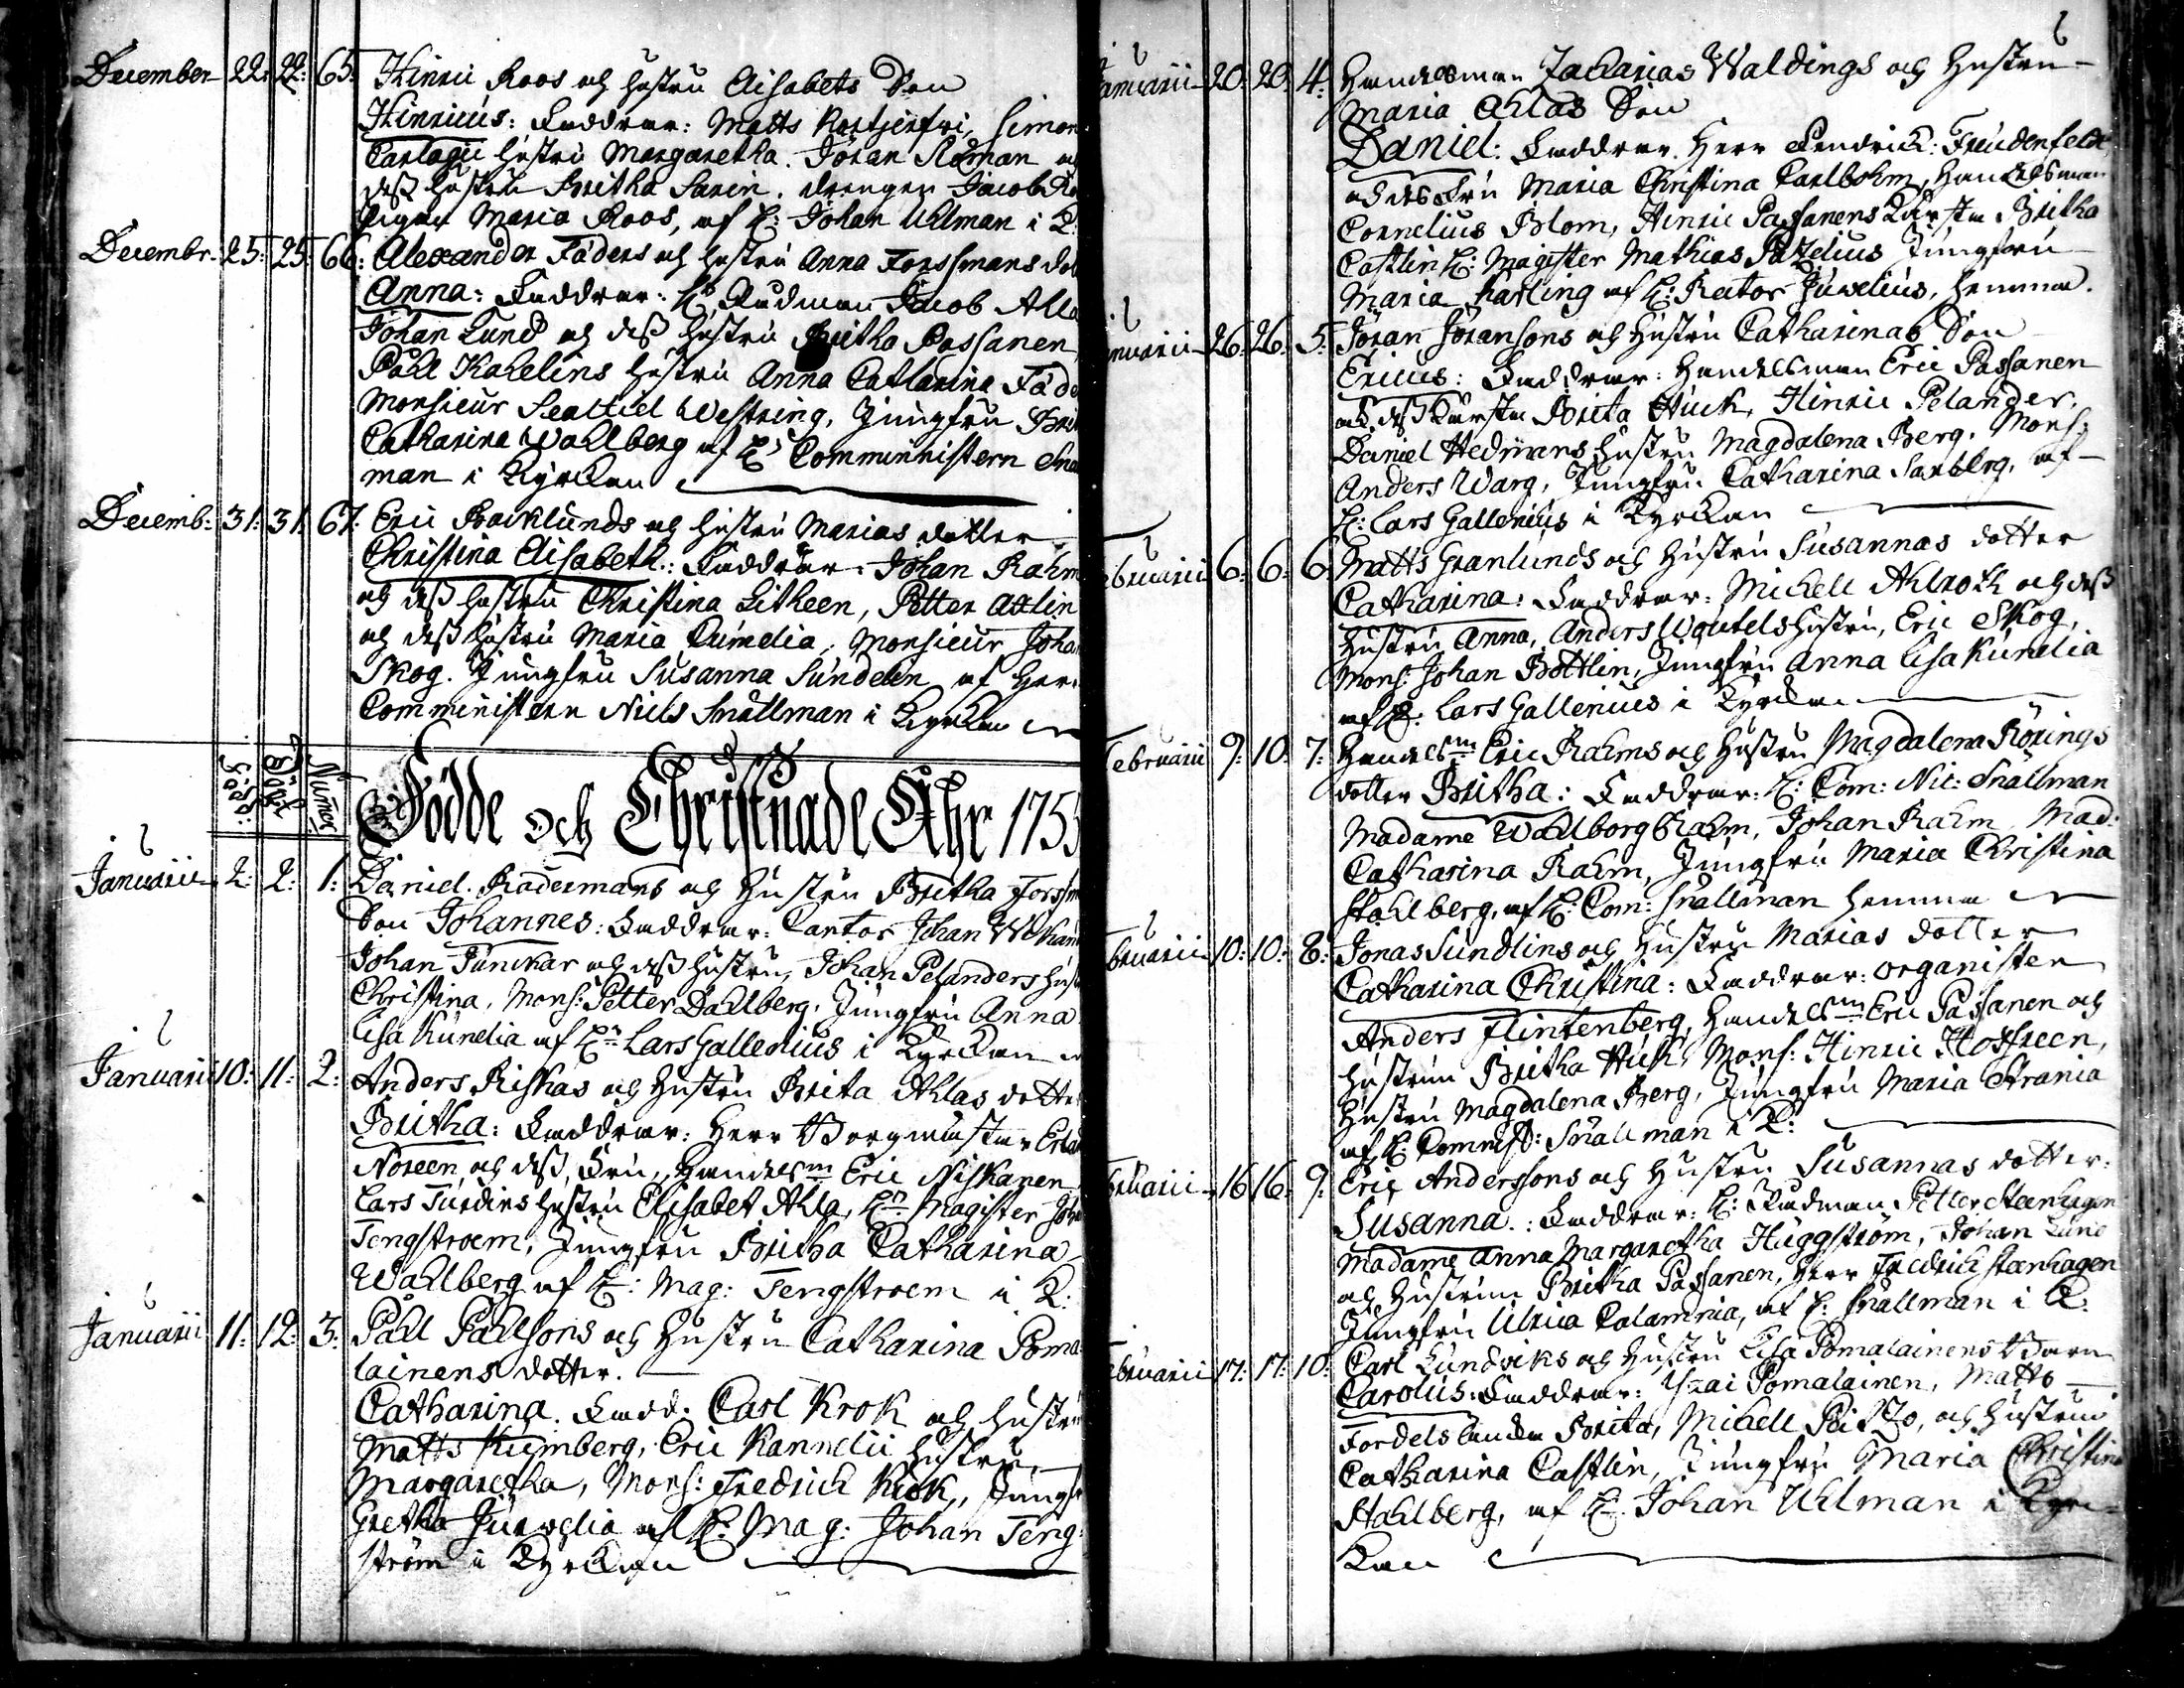 December 22: 22: 65. Hinric Roos och hustru Elisabets Son
Hinricus: Faddrar: Matts Simon
Carlagii hustru Margaretha. Jöran Rdman
dess hustru Britha Sarin. drengen Jacob
Pigan Maria Roos, af H: Johan Uhlman i K.
Decembr. 25: 25: 66: Alexander Fäders och hustru Anna Forssmans
Anna: Faddrar: Hr Rådman Jacob
Johan Lund och dess hustru Britha Passanen
Påhl Kahelins hustru Anna Catharina
Monsieur Sealtiel Westring, Jungfru
Catharina Wahlberg af Hr Comministern
man i Kyrckan
Decemb: 31: 31: 67. Eric Backlunds och hustru Marias dotter
Christina Elisabeth: Faddrar: Johan Rahm
och dess hustru Christina Litheen, Petter Attlin
och dess hustru Maria Cumelia, Monsieur Johan
Skog. Jungfru Susanna Sundelin af Herr
Comministern Niels Snällman i Kyrckan
Född: Döpt Numer
Födde och Christnade Åhr 1755
Januarii 2: 2: 1: Daniel Radermans och Hustru Britha
Son Johannes: Faddrar: Cantor Johan
Johan Junckar och dess hustru, Johan Pelanders
Christina, Mons: Petter Dahlberg, Jungfru Anna
Lisa Kunelia af Hr Lars Gallenius i Kyrckan
Januarii 10: 11: 2: Anders Riskas och Hustru Brita Ahlas dotter
Britha: Faddrar: Herr Borgmästar
Noreen och dess Fru, Handelsm Eric Niskanen
Lars Turdins hustru Elisabet Ahla, Hr Magister
Tengstroem, Jungfru Britha Catharina
Wahlberg af H: Mag: Tengstroem i K:
Januarii 11: 12: 3: Påhl Påhlsons och Hustru Catharina Poma
lainens dotter.
Catharina. Fadd. Carl Krok och hustru
Matts Kumberg, Eric Kannelii hustru
Margaretha, Mons: Fredrich Krok, Jungf
Gretha Juwelia af H: Mag: Johan Teng
ström i Kyrckan
Januarii 20: 20: 4: Handelsman Zacharias Waldings och Hustru
Maria Ahlas Son
Daniel: Faddrar: Herr Fendrick: Freudenfeldt
och dess Fru Maria Christina Carlbohm, Handelsman
Cornelius Blom, Hinric Passanens Kärsta Britha
Castlin, H: Magister Mathias Pazelius Jungfru
Maria Karling af H: Rector Juwelius, hemma.
Januarii 26: 26: 5: Jöran Jöransons och Hustru Catharinas Son
Ericus: Faddrar: Handelsman Eric Passanen
och dess Kärsta Brita Huck, Hinric Pelander,
Daniel Hedmans hustru Magdalena Berg, Mons:
Anders Warg, Jungfru Catharina Saxberg, af
H: Lars Gallenius i Kyrckan
Februarii 6: 6: 6 Matts Granlunds och Hustru Susannas dotter
Catharina: Faddrar: Michell Ahlroth och dess
Hustru Anna, Anders hustru, Eric Skog,
Mons: Johan Bottlin, Jungfru Anna Lisa Kunelia
af H: Lars Gallenius i Kyrckan
Februarii 9: 10: 7: Handelsm Eric Rahms och Hustru Magdalena Rörings
dotter Britha: Faddrar: H: Com: Nic: Snällman
Madame Wahlborg Rahm, Johan Rahm, Mad:
Catharina Rahm, Jungfru Maria Christina
Stahlberg, af H: Com: Snällman hemma
Februarii 10: 10: 8: Jonas Sundlins och Hustru Marias dotter
Catharina Christina: Faddrar: Organisten
Anders Flintenberg, Handelsm Eric Passanen och
hustrun Britha Huck, Mons: Hinric Hosfreen,
Hustru Magdalena Berg, Jungfru Maria Strania
af H: Commst: Snällman i K:
Februarii 16 16: 9: Eric Anderssons och Hustru Susannas dotter:
Susanna: Faddrar: H: Rådman Petter Steenhagen
Madame Anna Margaretha Häggström, Johan Lund
och Hustrun Britha Passanen, Herr Fredrich Stenhagen
Jungfru Ulrica Calamnia, af H: Snällman i K:
Februarii 17: 17: 10: Carl Lundviks och Hustru Lisa Pomalainens Barn
Carolus: Faddrar: Pomalainen, Matts
Fordels Brita, Michell, och Hustrun
Catharina Castlin, Jungfru Maria Christina
Stahlberg, af H: Johan Uhlman i Kyrc
kan